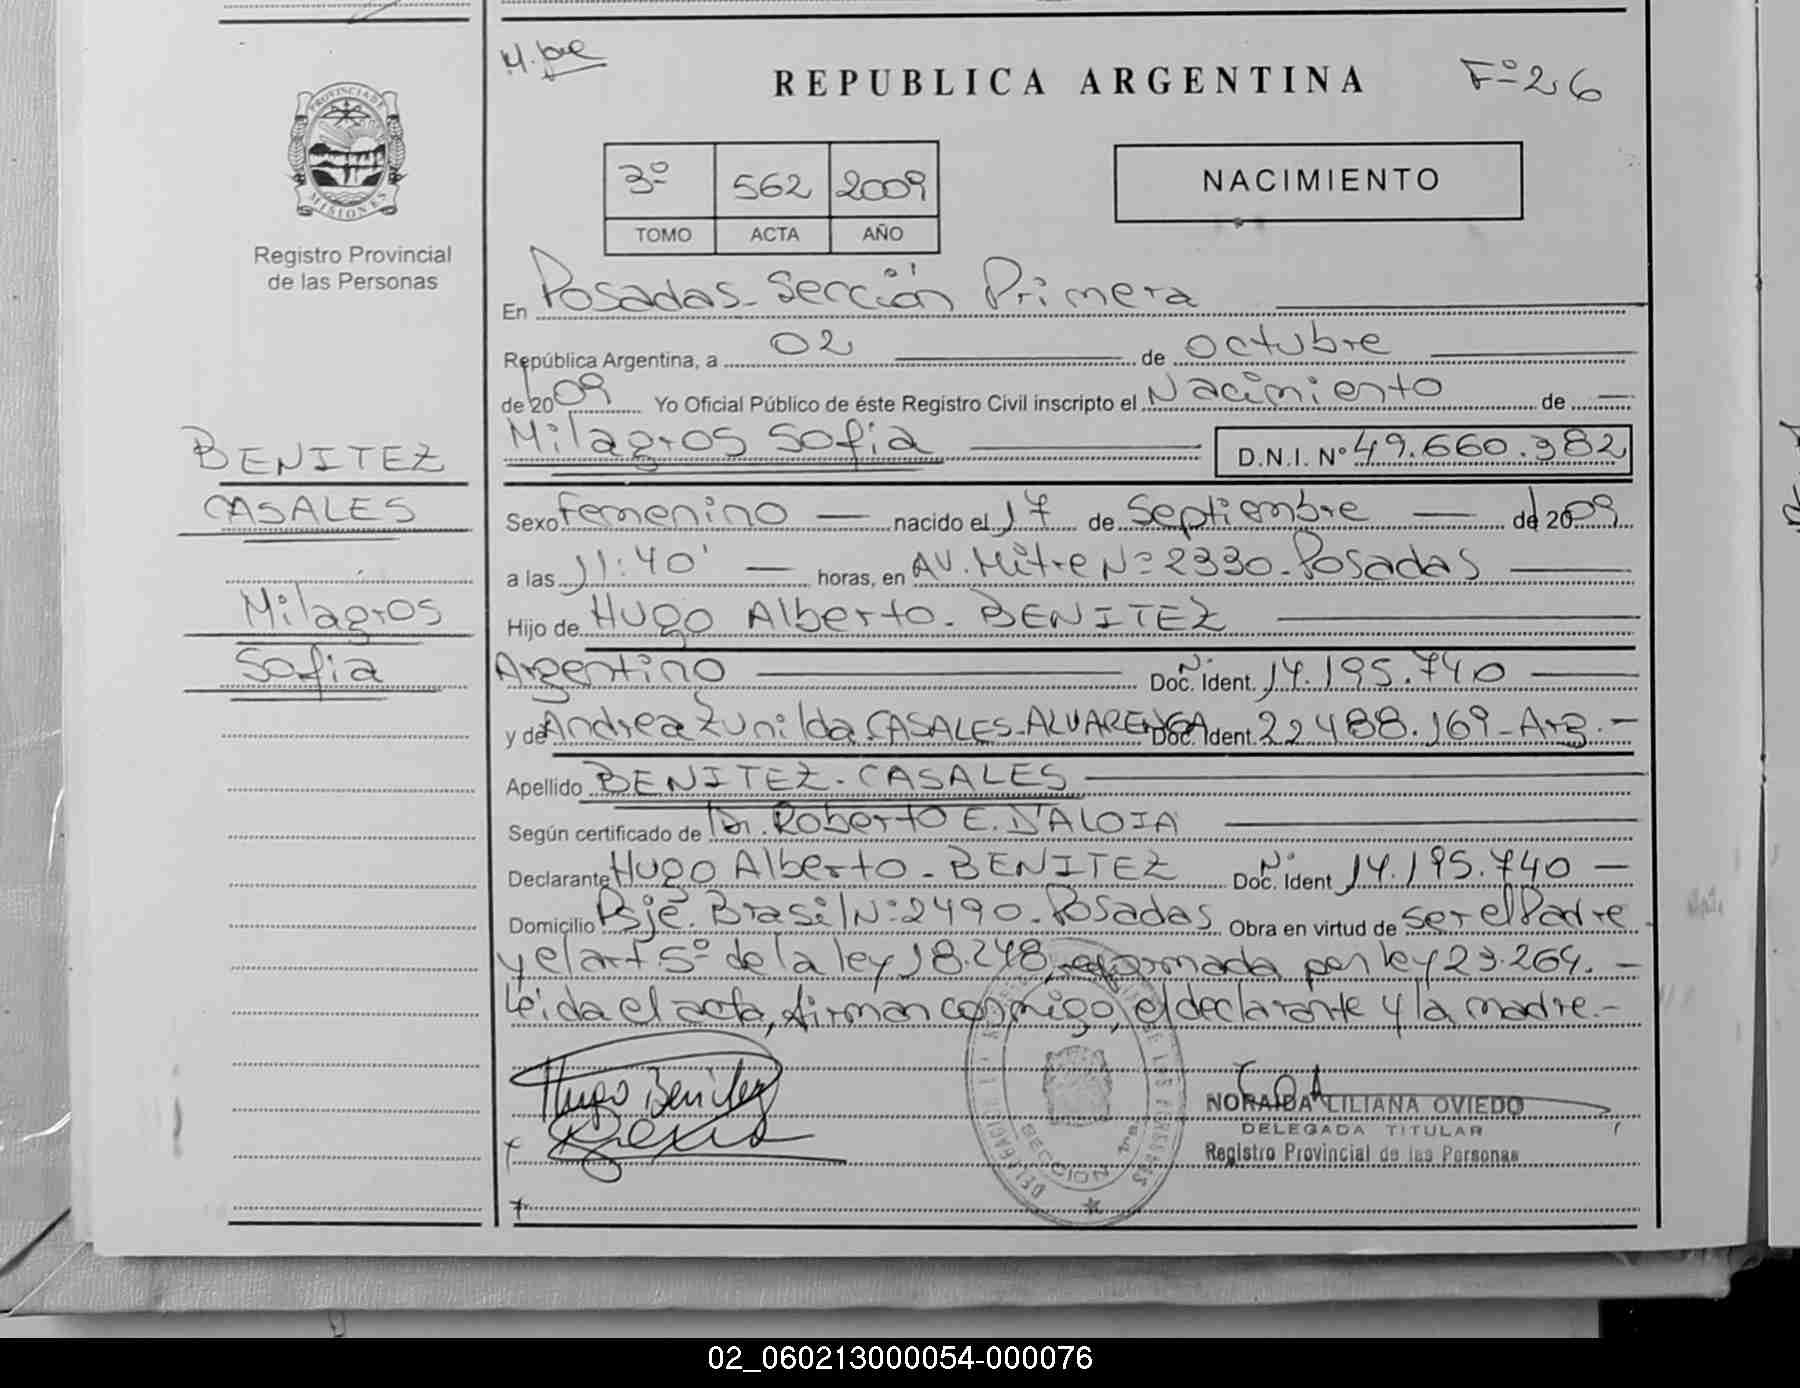 REPUBLICA ARGENTINA
Fº 26
PROVINCIA DE
MISIONES
Registro Provincial
de las Personas
3º 562 2009
TOMO ACTA AÑO
NACIMIENTO
En Posadas - Sección Primera
República Argentina, a 02 de octubre
de 2009 Yo Oficial Público de éste Registro Civil inscripto el Nacimiento de
Milagros Sofia D.N.I. Nº 49.660.382
BENITEZ
CASALES
Milagros
Sofia
Sexo Femenino nacido el 17 de Septiembre de 2009
a las 11:40' horas, en AV. Mitre Nº 2330 - Posadas
Hijo de Hugo Alberto - BENITEZ
Argentino Doc. Ident. Nº 14.195.740
y de Andrea Zunilda CASALES - ALVARENGA Doc. Ident. 22488.169 - Arg. -
Apellido BENITEZ - CASALES
Según certificado de Dr. Roberto E. D'ALOIA
Declarante Hugo Alberto - BENITEZ Doc. Ident Nº 14.195.740
Domicilio Psje. Brasil Nº 2490 - Posadas Obra en virtud de ser el Padre
y el art 5º de la ley 18.248, reformada por ley 23.264. -
Leida el acta, firman conmigo, el declarante y la madre. -
Hugo Benitez
SECCION 1ra
NORAIDA LILIANA OVIEDO
DELEGADA TITULAR
Registro Provincial de las Personas
02_060213000054-000076